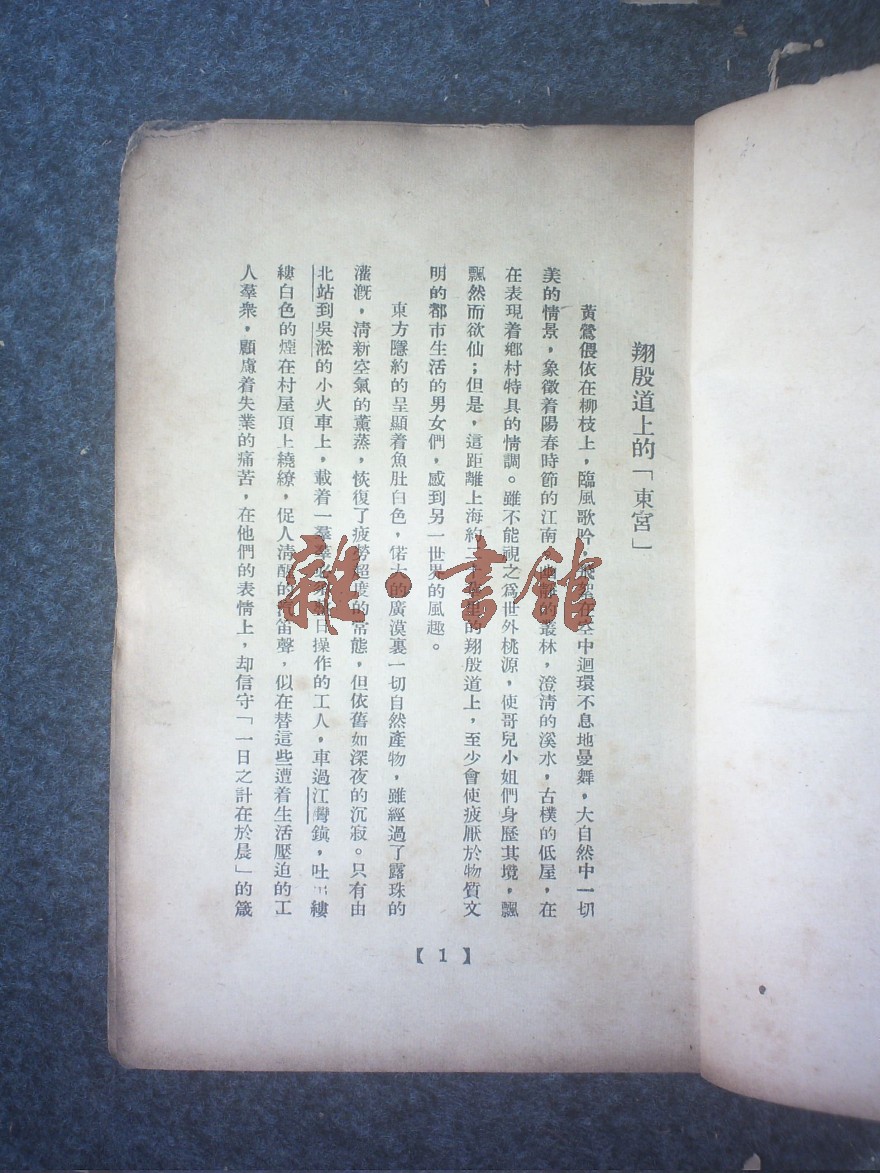 翔殷道上的「東宮」
黃鶯偎依在柳枝上，臨風歌吟，在空中迴環不息地曼舞，大自然中一切
美的情景，象徵着陽春時節的江南，的叢林，澄清的溪水，古樸的低屋，在
在表現着鄉村特具的情調。雖不能視之爲世外桃源，使哥兒小姐們身歷其境，飄
飄然而欲仙；但是，這距離上海約二十里的翔殷道上，至少會使疲厭於物質文
明的都市生活的男女們，感到另一世界的風趣。
東方隱約的呈顯着魚肚白色，偌大的廣漠裏一切自然產物，雖經過了露珠的
灌漑，清新空氣的薰蒸，恢復了疲勞超度的常態，但依舊如深夜的沉寂。只有由
北站到吳淞的小火車上，載着一羣羣日操作的工人，車過江灣鎮，吐出縷
縷白色的煙在村屋頂上繞繚，促人清醒的汽笛聲，似在替這些遭着生活壓迫的工
人羣衆，顧慮着失業的痛苦，在他們的表情上，却信守「一日之計在於晨」的箴
【1】
雜·書館